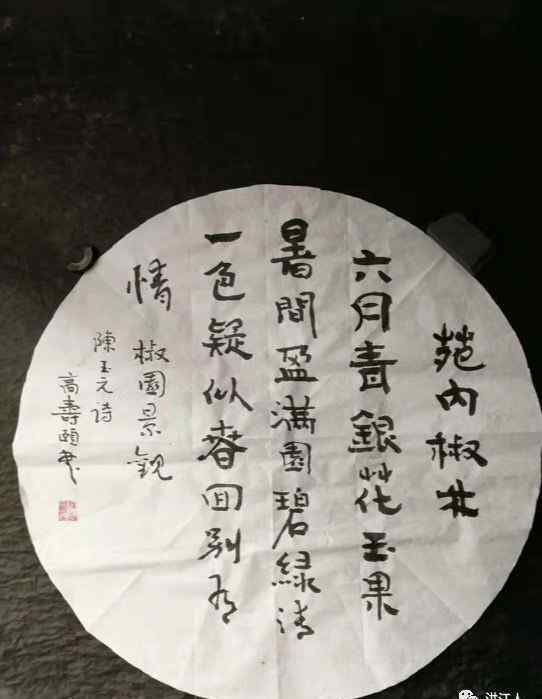 苑内椒林
六月青銀花玉果
暑間盈滿園碧綠清
一色疑似春回别有
情
椒園景觀
陳玉元诗
高壽頤书
洪江人